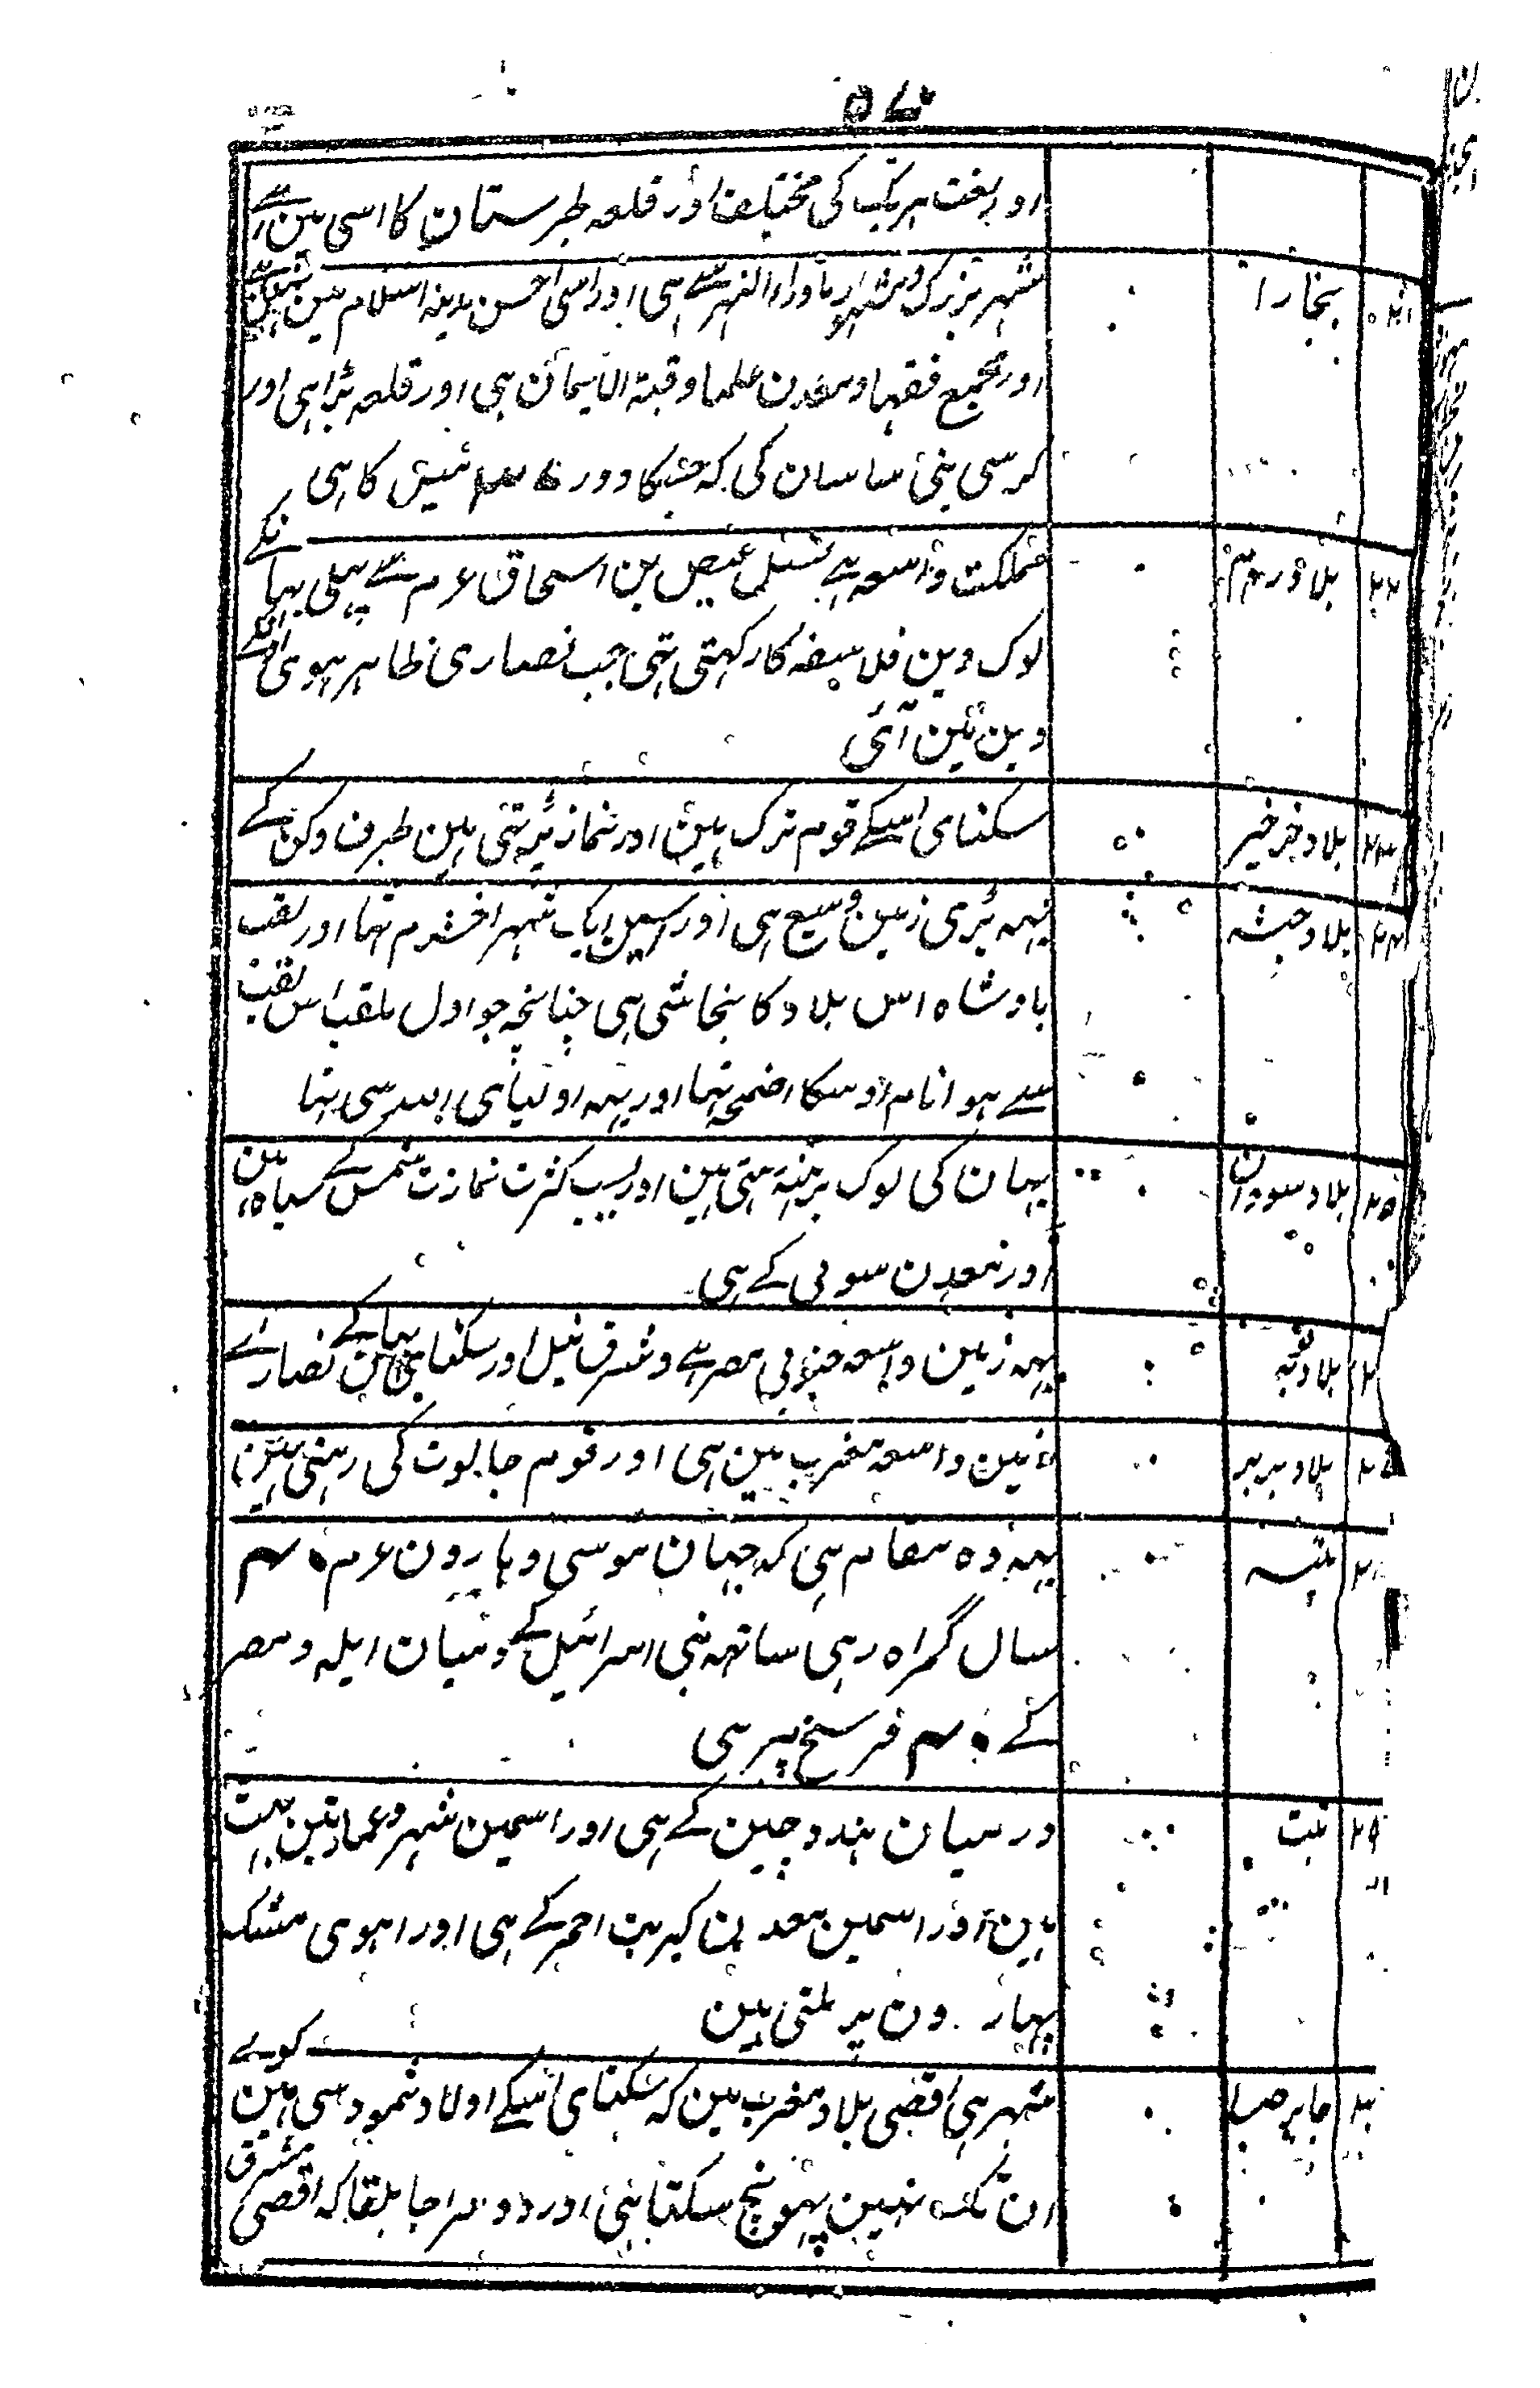 ۵۷
اور لغت ہر یک کی مختلف اور قلعہ طبرستان کا اسی مین ہے
۲۱ بخارا شہر بزرک ومشہور ماوراء النہر سے ہی اور اسی احسن مدینۂ اسلام مین
اور مجمع فقہا و معدن علما و قبۃ الایمان ہی اور قلعہ بڑا ہی اور
کرسی بنی ساسان کی کہ جسکا دور ۳۷ میل کا ہی
۲۲ بلاد روم مملکت واسعہ ہے نسل عیص بن اسحاق عرم سے پہلی یہانکے
لوک دین فلاسفہ کا رکہتی تہی جب نصاری ظاہر ہوی انکے
دین مین آئی
۲۳ بلاد خرخیر سکنای اسکے قوم ترک ہین اور نماز پڑہتی ہین طرف دکن کے
۲۴ بلاد حبشہ یہہ بڑی زمین وسیع ہی اور اسمین ایک شہر اخشدم تہا اور لقب
بادشاہ اس بلاد کا نجاشی ہی چنانچہ جو اول ملقب اس لقب
سے ہوا نام اوسکا اضمحہ تہا اور یہہ اولیای اللہ سی تہا
۲۵ بلاد سودان یہان کی لوک برہنہ رہتی ہین اور بسبب کثرت تمازت شمس کے سیاہ ہین
اور معدن سونی کے ہی
بلاد نوبہ یہہ زمین واسعہ جنوبی مصر ہے و شرق نیل اور سکنای یہانکے ہین نصارے
۲۷ بلاد بربر زمین واسعہ مغرب مین ہی اور قوم جالوت کی رہتی ہین
تیہ یہہ وہ مقام ہی کہ جہان موسی وہارون عرم ۴۰
سال گمراہ رہی ساتہہ بنی اسرائیل کے درمیان ایلہ و مصر
کے ۴۰ فرسخ پر ہی
۲۹ تبت درمیان ہند وچین کے ہی اور اسمین شہر وعمارتین بہت
ہین اور اسمین معدن کبریت احمر کے ہی اور اہوی مشک
پہاڑون پر ملتی ہین
جابرصا شہر ہی اقصی بلاد مغرب مین کہ سکنای اسکے اولاد ثمود سی ہین کوے
ان تک نہین پہونچ سکتا ہی اور دوسرا جابلقا کہ اقصی مشرق